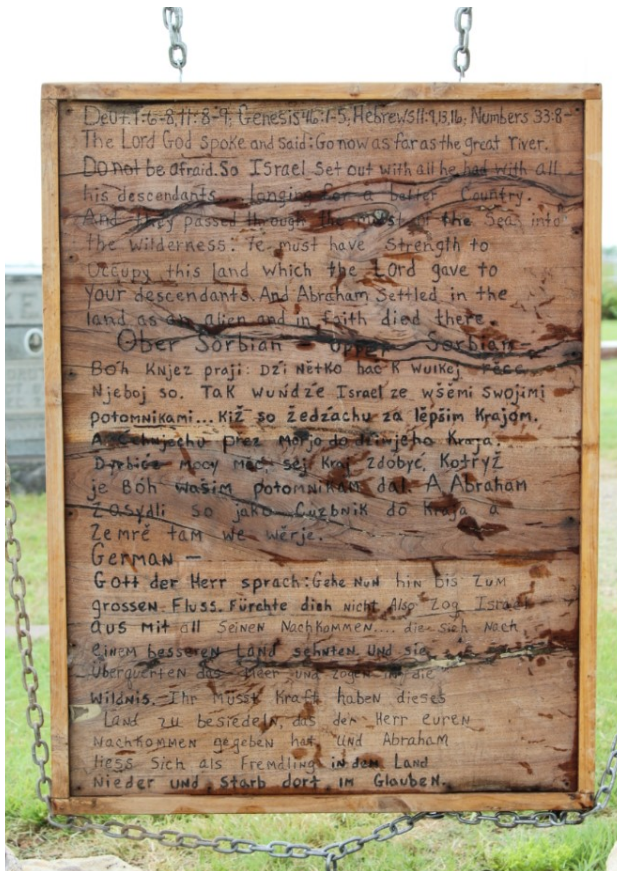 Deut. 1:6-8, 11:8-9; Genesis 46:1-5; Hebrews 11:9,13,16; Numbers 33:8-
The Lord God spoke and said: Go now as far as the great river.
Do not be afraid. So Israel set out with all he had with all
his descendants longing for a better Country.
And they passed through the midst of the Sea into
the wilderness: Ye must have strength to
Occupy this land which the Lord gave to
your descendants. And Abraham settled in the
land as an alien and in faith died there.
Ober Sorbian - Upper Sorbian -
Bóh Knjez praji: Dźi nětko hač k wulkej rěce.
Njeboj so. Tak wundźe Israel ze wšěmi swojimi
potomnikami... Kiž so žedźachu za lěpšim Krajom.
A prez morjo do Kraja.
mocy měć, sej Kraj zdobyć, Kotryž
je Bóh wašim potomnikam dal. A Abraham
Zasydli so jako Cuzbnik do Kraja a
Zemrě tam we wěrje.
German -
Gott der Herr sprach: Gehe nun hin bis zum
grossen Fluss. Fürchte dich nicht Also zog Israel
aus mit all Seinen Nachkommen.... die sich nach
einem besseren Land sehnten und sie
Überquerten das Meer und zogen in die
Wildnis. - Ihr müsst Kraft haben dieses
Land zu besiedeln, das der Herr euren
Nachkommen gegeben hat und Abraham
liess sich als Fremdling in dem Land
Nieder und starb dort im Glauben.